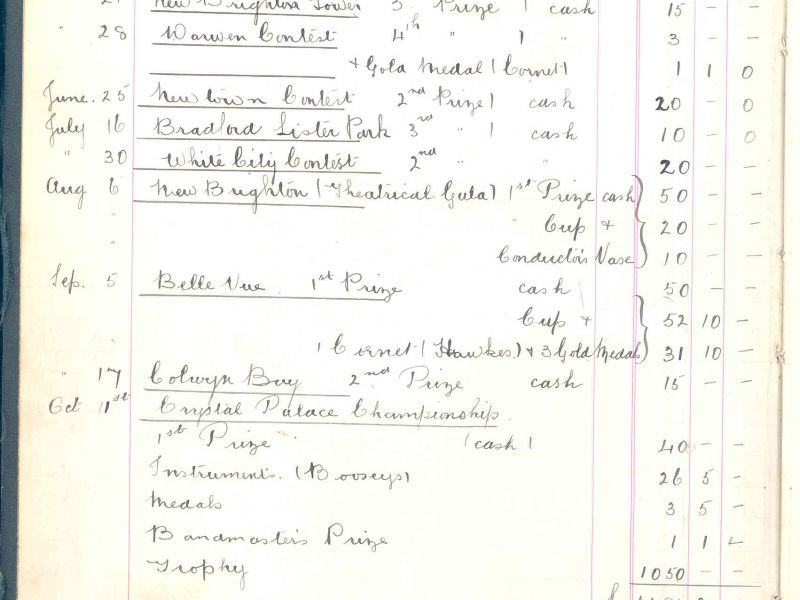 New Brighton Tower 3 Prize ( cash 15 - -
" 28 Darwen Contest 4th " ( " 3 - -
+ Gold Medal (Cornet) 1 1 0
June. 25 Newtown Contest 2nd Prize) cash 20 - 0
July 16 Bradford Lister Park 3rd " ( cash 10 - 0
" 30 White City Contest 2nd " " 20 - -
Aug 6 New Brighton (Theatrical Gala) 1st Prize cash 50 - -
" " Cup + 20 - -
" Conductors Vase 10 - -
Sep. 5 Belle Vue. 1st Prize cash 50 - -
Cup + 52 10 -
1 Cornet (Hawkes.) + 3 Gold Medals 31 10 -
" 17 Colwyn Bay 2nd Prize cash 15 - -
Oct 1st Crystal Palace Championship.
1st Prize (cash) 40 - -
Instruments. (Booseys) 26 5 -
Medals 3 5 -
Bandmaster's Prize 1 1 -
Trophy 1050 - -